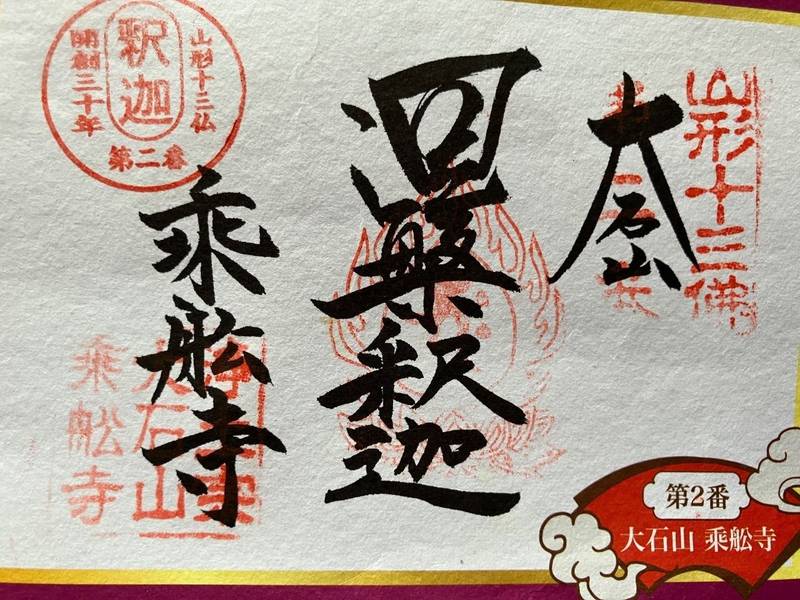 山形十三佛
大石山
涅槃釈迦
山形十三仏
釈迦
開創三十年
第二番
乗舩寺
浄土宗
大石山
乗舩寺
第2番
大石山 乗舩寺